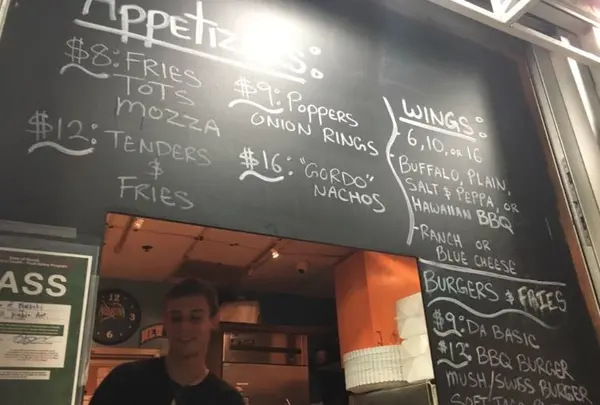 Appetizers:
$8: FRIES
TOTS
MOZZA
$12: TENDERS
&
FRIES
$9: POPPERS
ONION RINGS
$16: "GORDO"
NACHOS
WINGS:
6, 10, OR 16
BUFFALO, PLAIN,
SALT & PEPPA, OR
HAWAIIAN BBQ
RANCH OR
BLUE CHEESE
BURGERS & FRIES
$9: DA BASIC
$13: BBQ BURGER
MUSH/SWISS BURGER
PASS
12